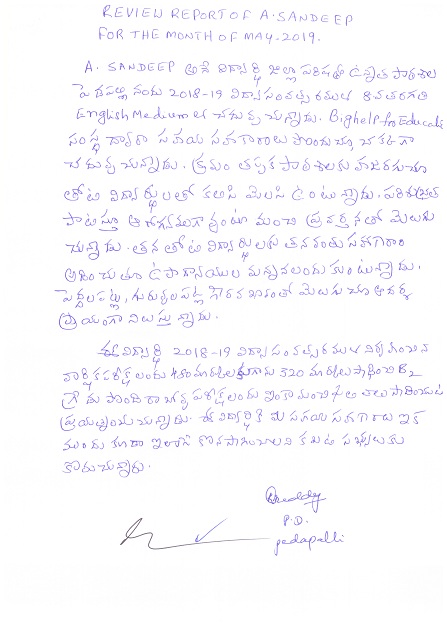 REVIEW REPORT OF A. SANDEEP
FOR THE MONTH OF MAY-2019.
A. SANDEEP అనే విద్యార్థి జిల్లా పరిషత్ ఉన్నత పాఠశాల
పెదపల్లి నందు 2018-19 విద్యా సంవత్సరములో 8వ తరగతి
English Medium లో చదువుచున్నాడు. Bighelp for Educati
సంస్థ ద్వారా సహాయ సహకారాలు పొందుచూ చక్కగా
చదువుచున్నాడు. క్రమం తప్పక పాఠశాలకు హాజరగుచూ
తోటి విద్యార్థులతో కలసి మెలసి ఉంటున్నాడు. పరిశుభ్రత
పాటిస్తూ ఆరోగ్యముగా వుంటూ మంచి ప్రవర్తనతో మెలుగు
చున్నాడు. తన తోటి విద్యార్థులకు తనవంతు సహకారం
అందించుతూ ఉపాధ్యాయుల మన్ననలందుకుంటున్నాడు.
పెద్దలపట్ల, గురువులపట్ల గౌరవ భావంతో మెలుగుచూ ఆదర్శ
ప్రాయంగా నిలుస్తున్నాడు.
ఈ విద్యార్థి 2018-19 విద్యా సంవత్సరములో నిర్వహించిన
వార్షిక పరీక్షలందు మార్కులకుగాను 520 మార్కులు సాధించి B2
గ్రేడు పొంది రాబోవు పరీక్షలందు ఇంకా మంచి
ప్రయత్నించుచున్నాడు. ఈ విద్యార్థికి మీ సహాయ సహకారాలు ఇక
ముందు కూడా ఇలాగే కొనసాగించాలని కమిటీ సభ్యులకు
కోరుచున్నాము.
P.D.
pedapalli